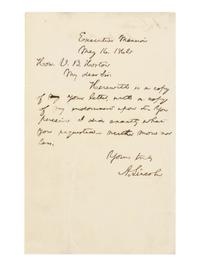 Executive Mansion
May 16. 1862
Hon. V. B. Horton
My dear Sir.
Herewith is a copy
of my your letter, with a copy
of my indorsement upon it. You
perceive I did exactly what
you requested neither more nor
less.
Yours truly
A. Lincoln